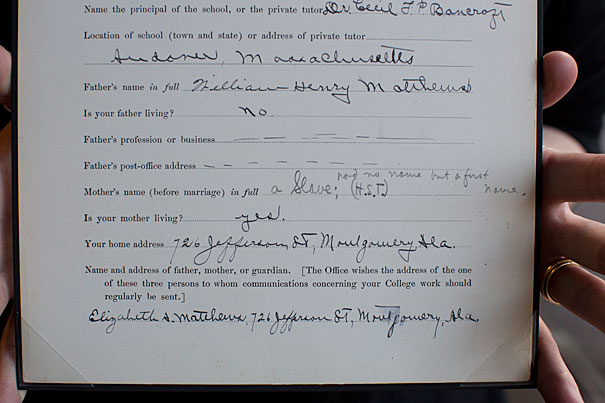 Name the principal of the school, or the private tutor Dr. Cecil F. P. Bancroft
Location of school (town and state) or address of private tutor
Andover, Massachusetts
Father's name in full William Henry Matthews
Is your father living? No
Father's profession or business
Father's post-office address
had no name but a first name.
Mother's name (before marriage) in full a Slave; (H.S.T.)
Is your mother living? yes.
Your home address 726 Jefferson St, Montgomery, Ala.
Name and address of father, mother, or guardian. [The Office wishes the address of the one
of these three persons to whom communications concerning your College work should
regularly be sent.]
Elizabeth A. Matthews, 726 Jefferson St, Montgomery, Ala.